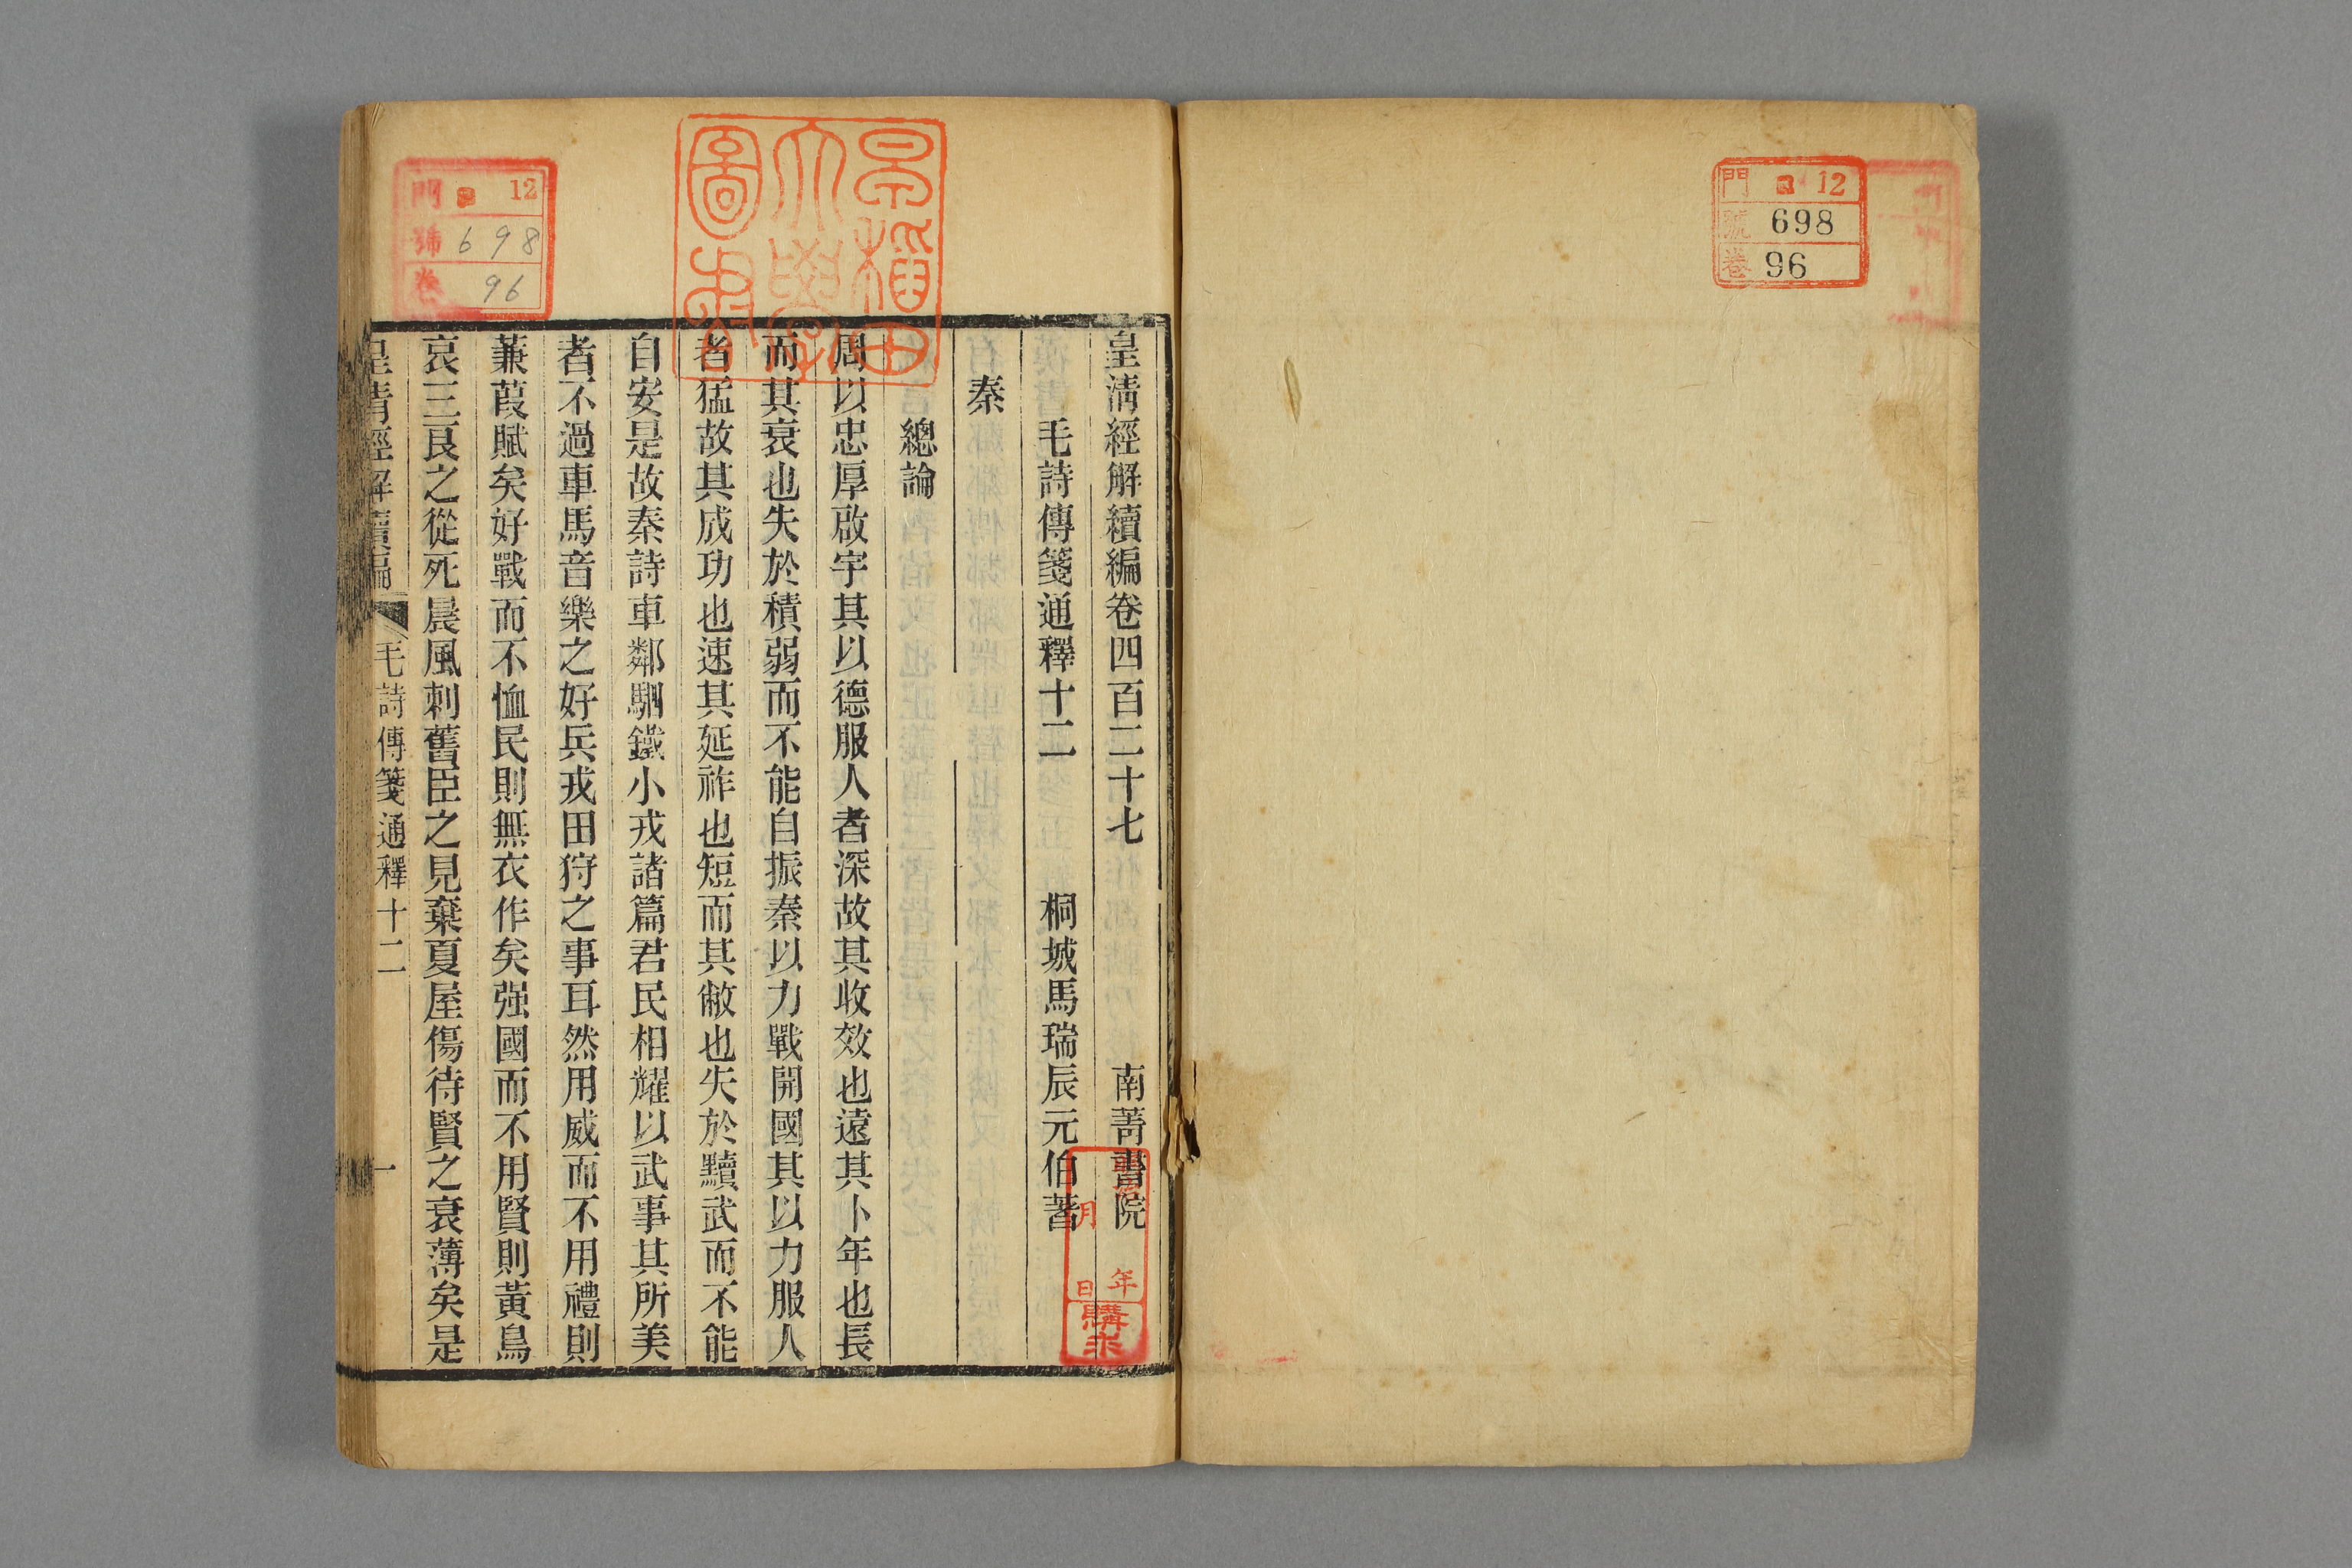 門 ロ 12
號 698
卷 96
皇清經解續編卷四百二十七 南菁書院
毛詩傳箋通釋十二 桐城馬瑞辰元伯著
秦
總論
周以忠厚啟宇其以德服人者深故其收效也遠其卜年也長
而其衰也失於積弱而不能自振秦以力戰開國其以力服人
者猛故其成功也速其延祚也短而其敝也失於黷武而不能
自安是故秦詩車鄰駟鐵小戎諸篇君民相耀以武事其所美
者不過車馬音樂之好兵戎田狩之事耳然用威而不用禮則
蒹葭賦矣好戰而不恤民則無衣作矣强國而不用賢則黃鳥
哀三良之從死晨風刺舊臣之見棄夏屋傷待賢之衰薄矣是
皇清經解續編 毛詩傳箋通釋十二 一
早稲田
大學
圖書
門 ロ 12
號 698
卷 96
年
月
日
購求